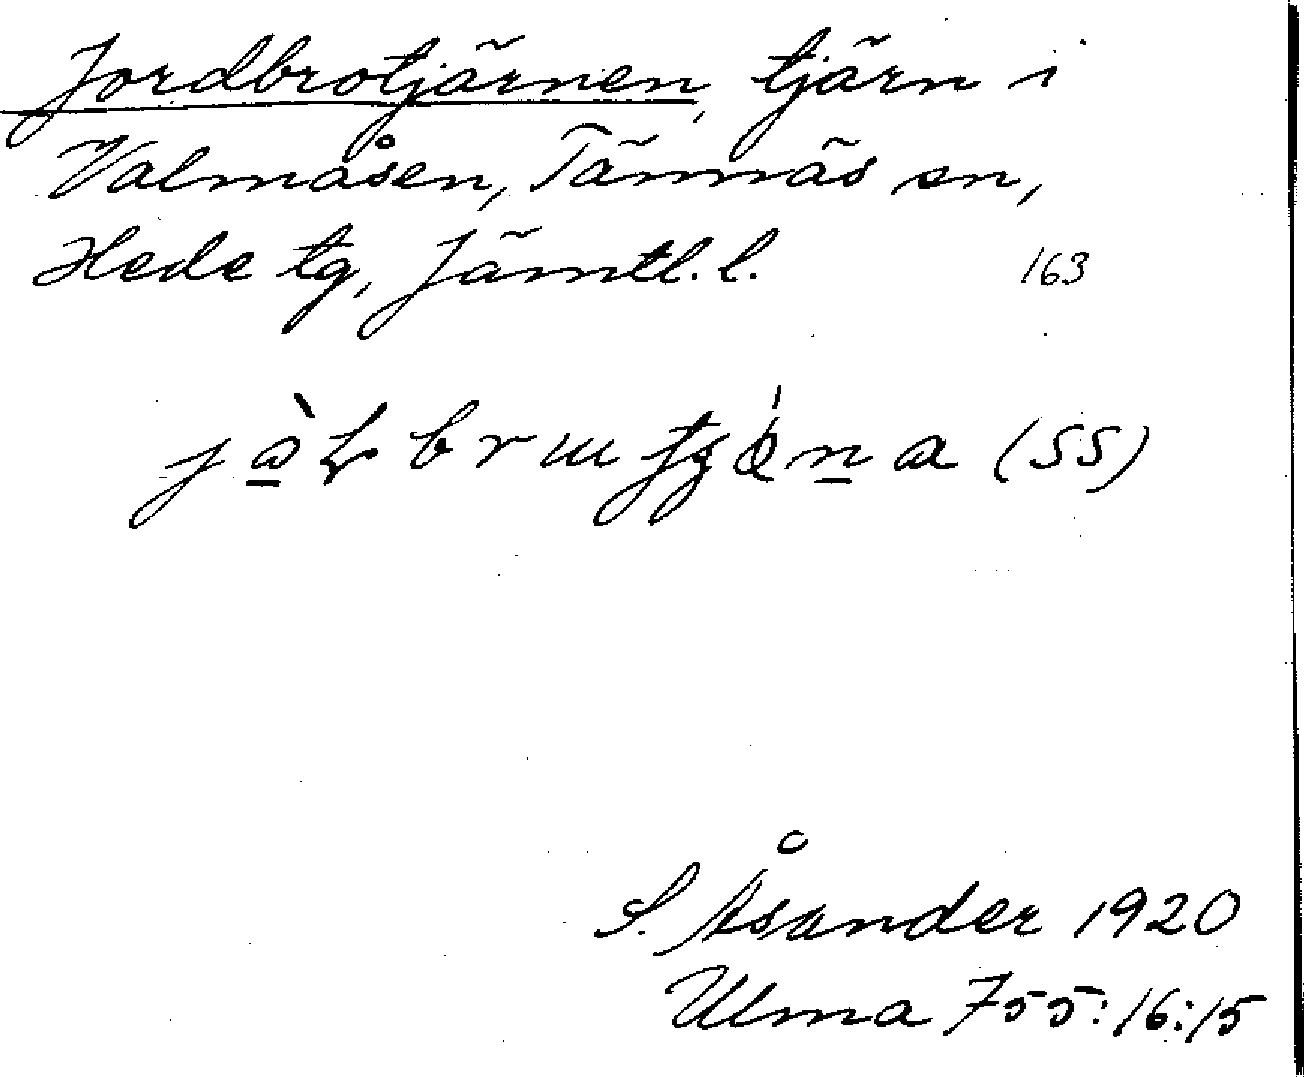 Jordbrotjärnen, tjärn i
Valmåsen, Tännäs sn,
Hede tg, Jämtl. l. 163
(SS)
S. Åsander 1920
Ulma 755:16:15